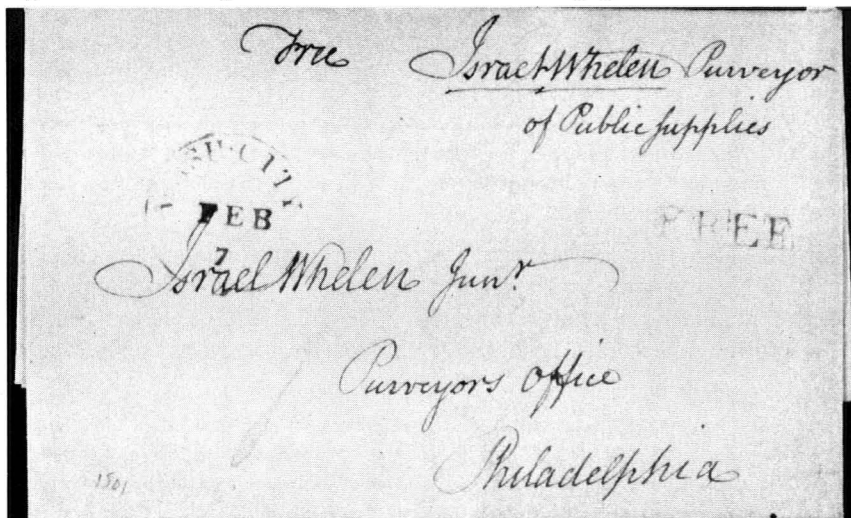 Free Israel Whelen Purveyor
of Public supplies
CITY
FEB
7
FREE
Israel Whelen Junr.
Purveyors Office
Philadelphia
1801